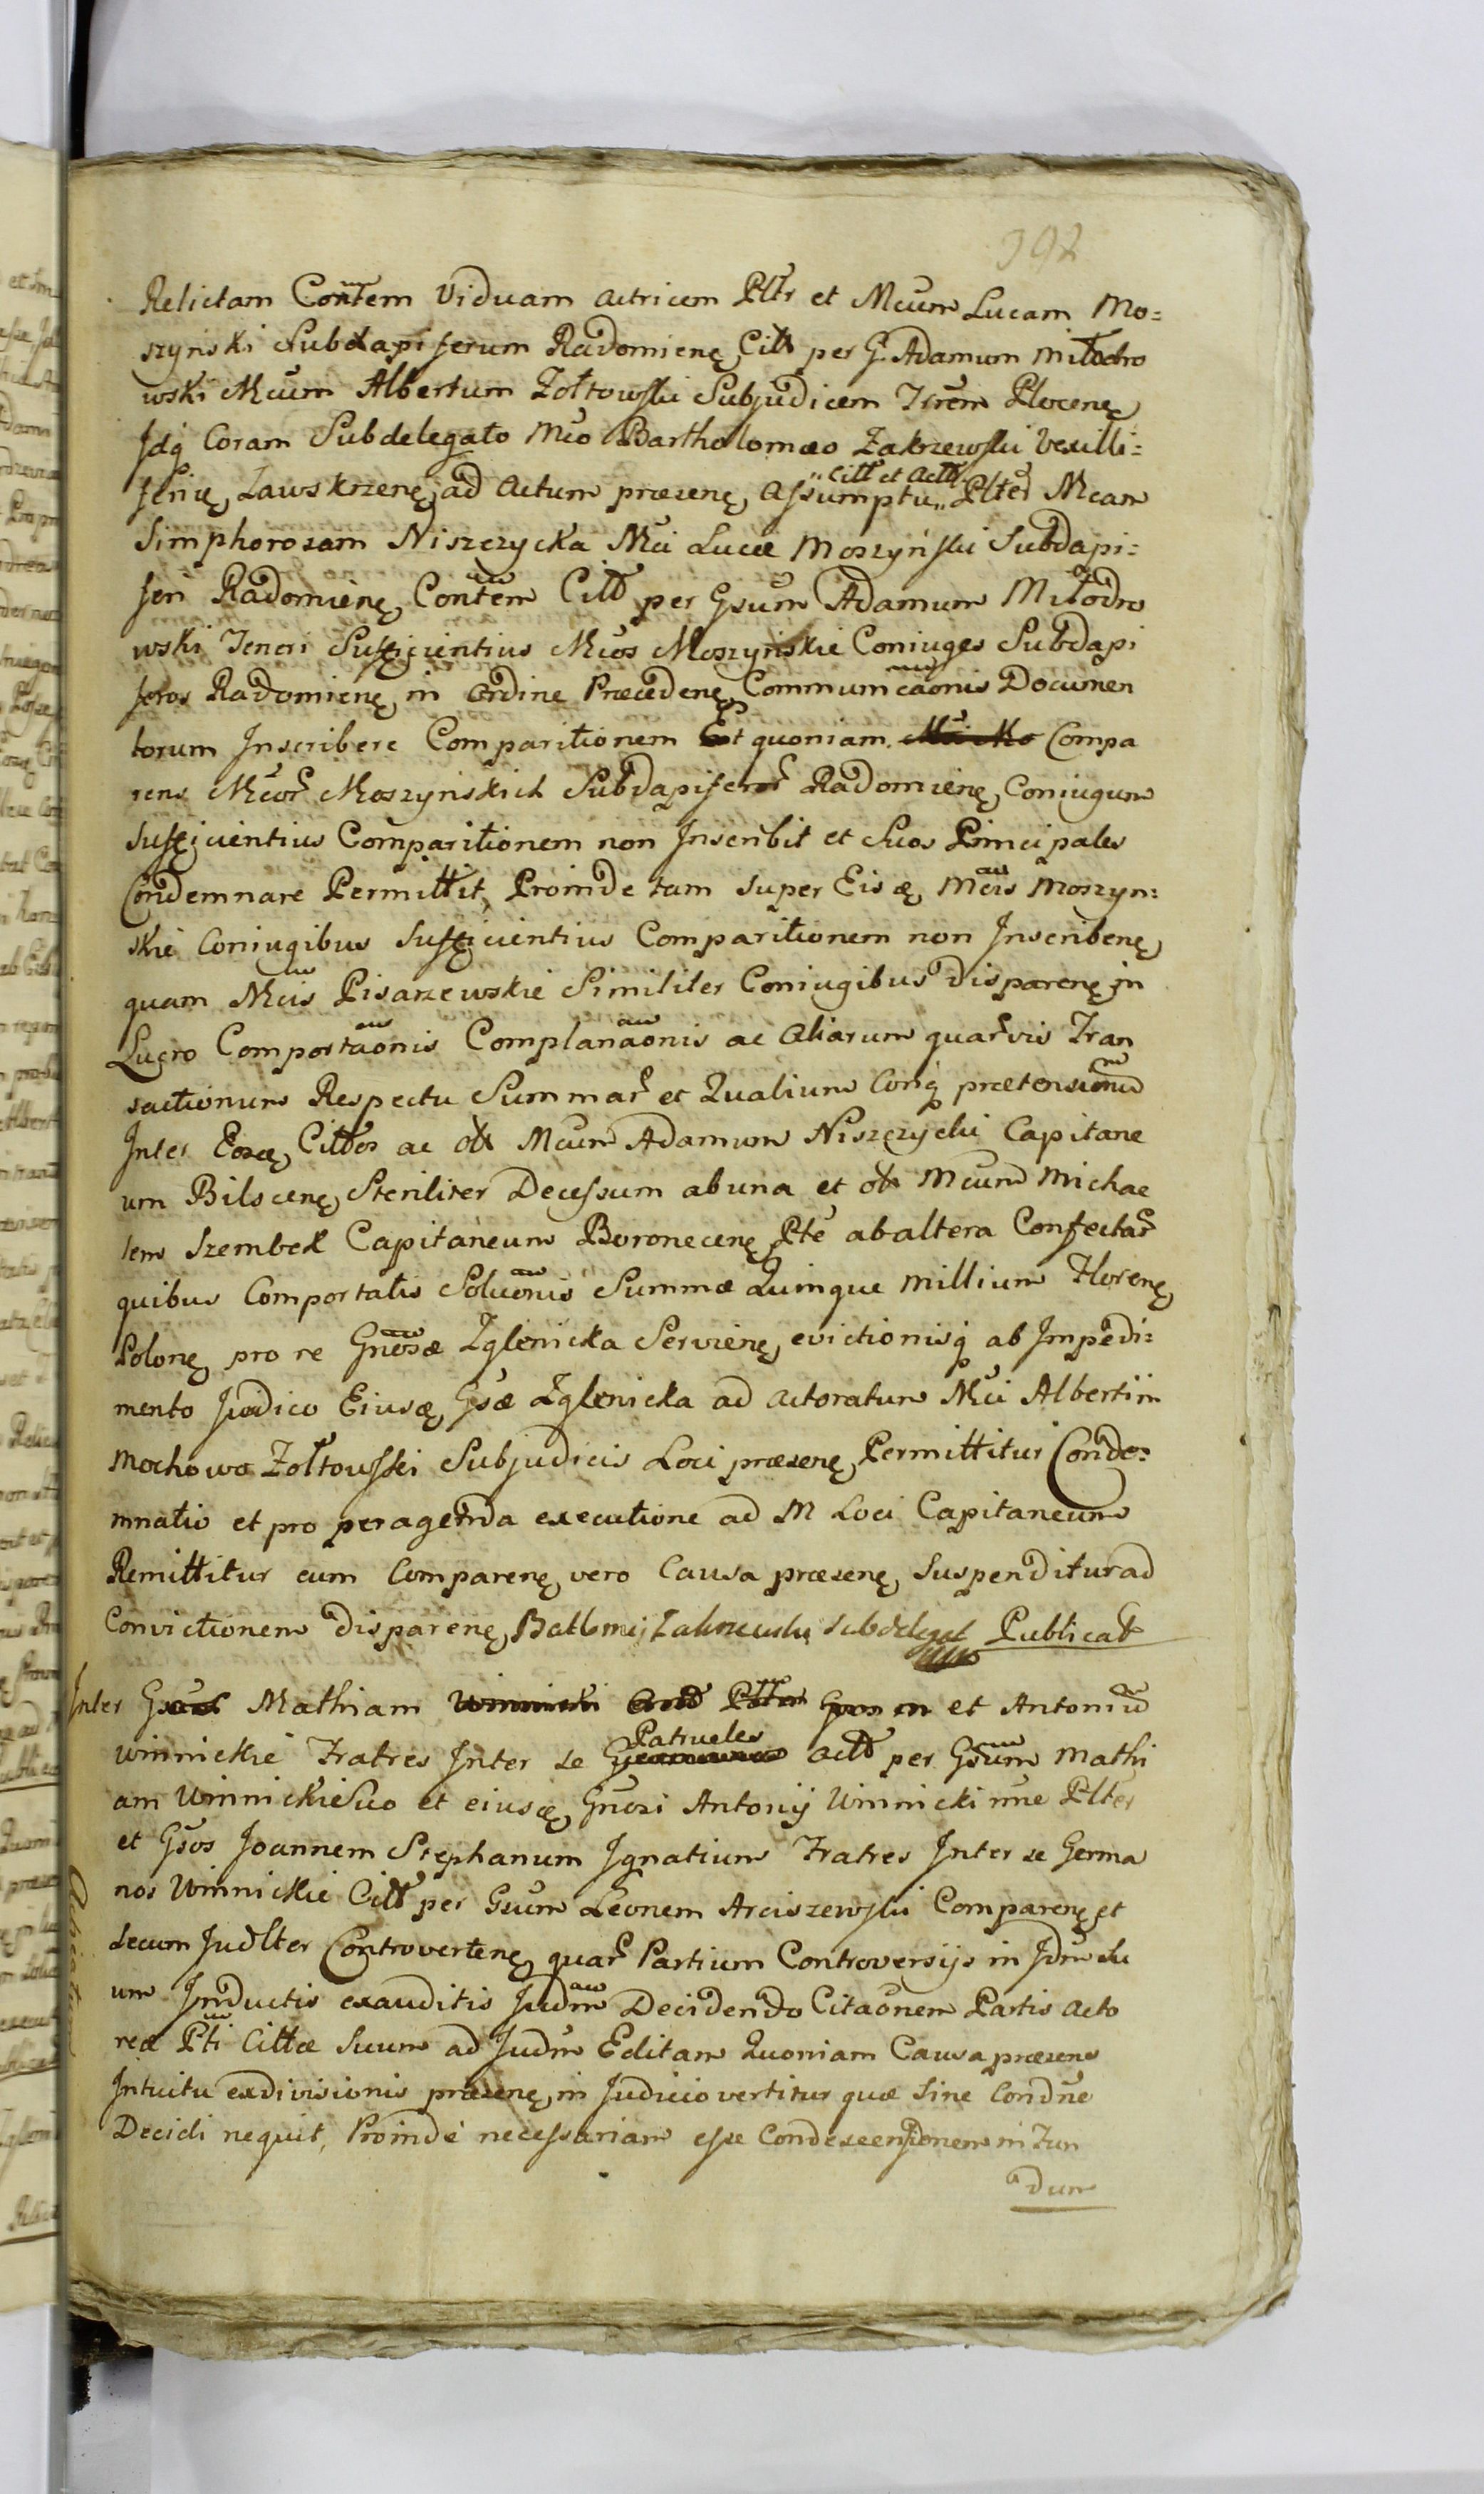 392
Relictam Contem Viduam actricem Pltr et Mcum Lucam Mo=
szyński Subdapiferum Radomienę Citt per G. Adamum Miłodro
wski Mcum Albertum Zołtowski Subjudicem Trrem Plocenę
Idq Coram Subdelegato Mco Bartholomæo Zakrzewski Vexilli=
ferię Zawskrzenę ad actum præsenę assumptu,, Plter Mcam
,,Citt et Actt
Simphorosam Niszczycka Mci Lucæ Moszyński Subdapi=
feri Radomienę Contem Citt per Gsum Adamum Miłodro
wski Teneri Sufficientius Mcos Moszyńskie Coniuges Subdapi
feros Radomienę in ordine Præcedenę Communicaonis Documen
torum Inscribere Comparitionem Et quoniam Compa
rens Mcor Moszynskich Subdapiferor Radomienę Coniugum
sufficientius Comparitionem non Inscribit et Suos Principales
Condemnare Permittit, Proinde tam super Eisdę Mcis Moszyn=
skie Coniugibus sufficientius Comparitionem non Inscribenę
quam Mcis Pisarzewskie Similiter Coniugibus disparenę in
Lucro Comportaonis Complanaonis ac Aliarum quarvis Tran
sactionum Respectu Summar et Qualium Cunq prætensionum
Inter Eosdę Cittos ac olt Mcum Adamum Niszczycki Capitane
um Bilscenę Steriliter Decessum ab una et olt Mcum Michae
lem Szembek Capitaneum Boronecenę Pte ab altera Confectar
quibus Comportatis Soluonis Summæ Quinque Millium Florenę
Polonę pro re Gnosæ Zglenicka Servienę evictionisq ab Impedi=
mento Juridico Eiusdę Gsæ Zglenicka ad actoratum Mci Alberti in
Mochowo Zołtowski Subjudicis Loci præsenę Permittitur Conde=
mnatio et pro peragenda executione ad M Loci Capitaneum
Remittitur cum Comparenę vero Causa præsenę suspenditur ad
Convictionem disparenę Batlmiej Zakrzewski Subdelegat Publicat
Inter Mathiam et Antonium
Patrueles
Winnickie Fratres Inter se actt per Gsum Mathi
am Winnickie Suo et eiusdę Gnosi Antonij Winnicki nne Plter
et Gsos Joannem Stephanum Ignatium Fratres Inter se Germa
nos Winnickie Citt per Gsum Leonem Arciszewski Comparenę et
secum Judlter Controvertenę quar Partium Controversijs in Jdm su
um Inductis exauditis Judm Decidendo Citaonem Partis Acto
reæ Pti Cittæ Suum ad Judm Editam Quoniam Causa præsens
Intuitu exdivisionis præsenę in Judicio vertitur quæ sine Condne
Decidi nequit, Proinde necessariam esse Condescensionem in Fun
dum